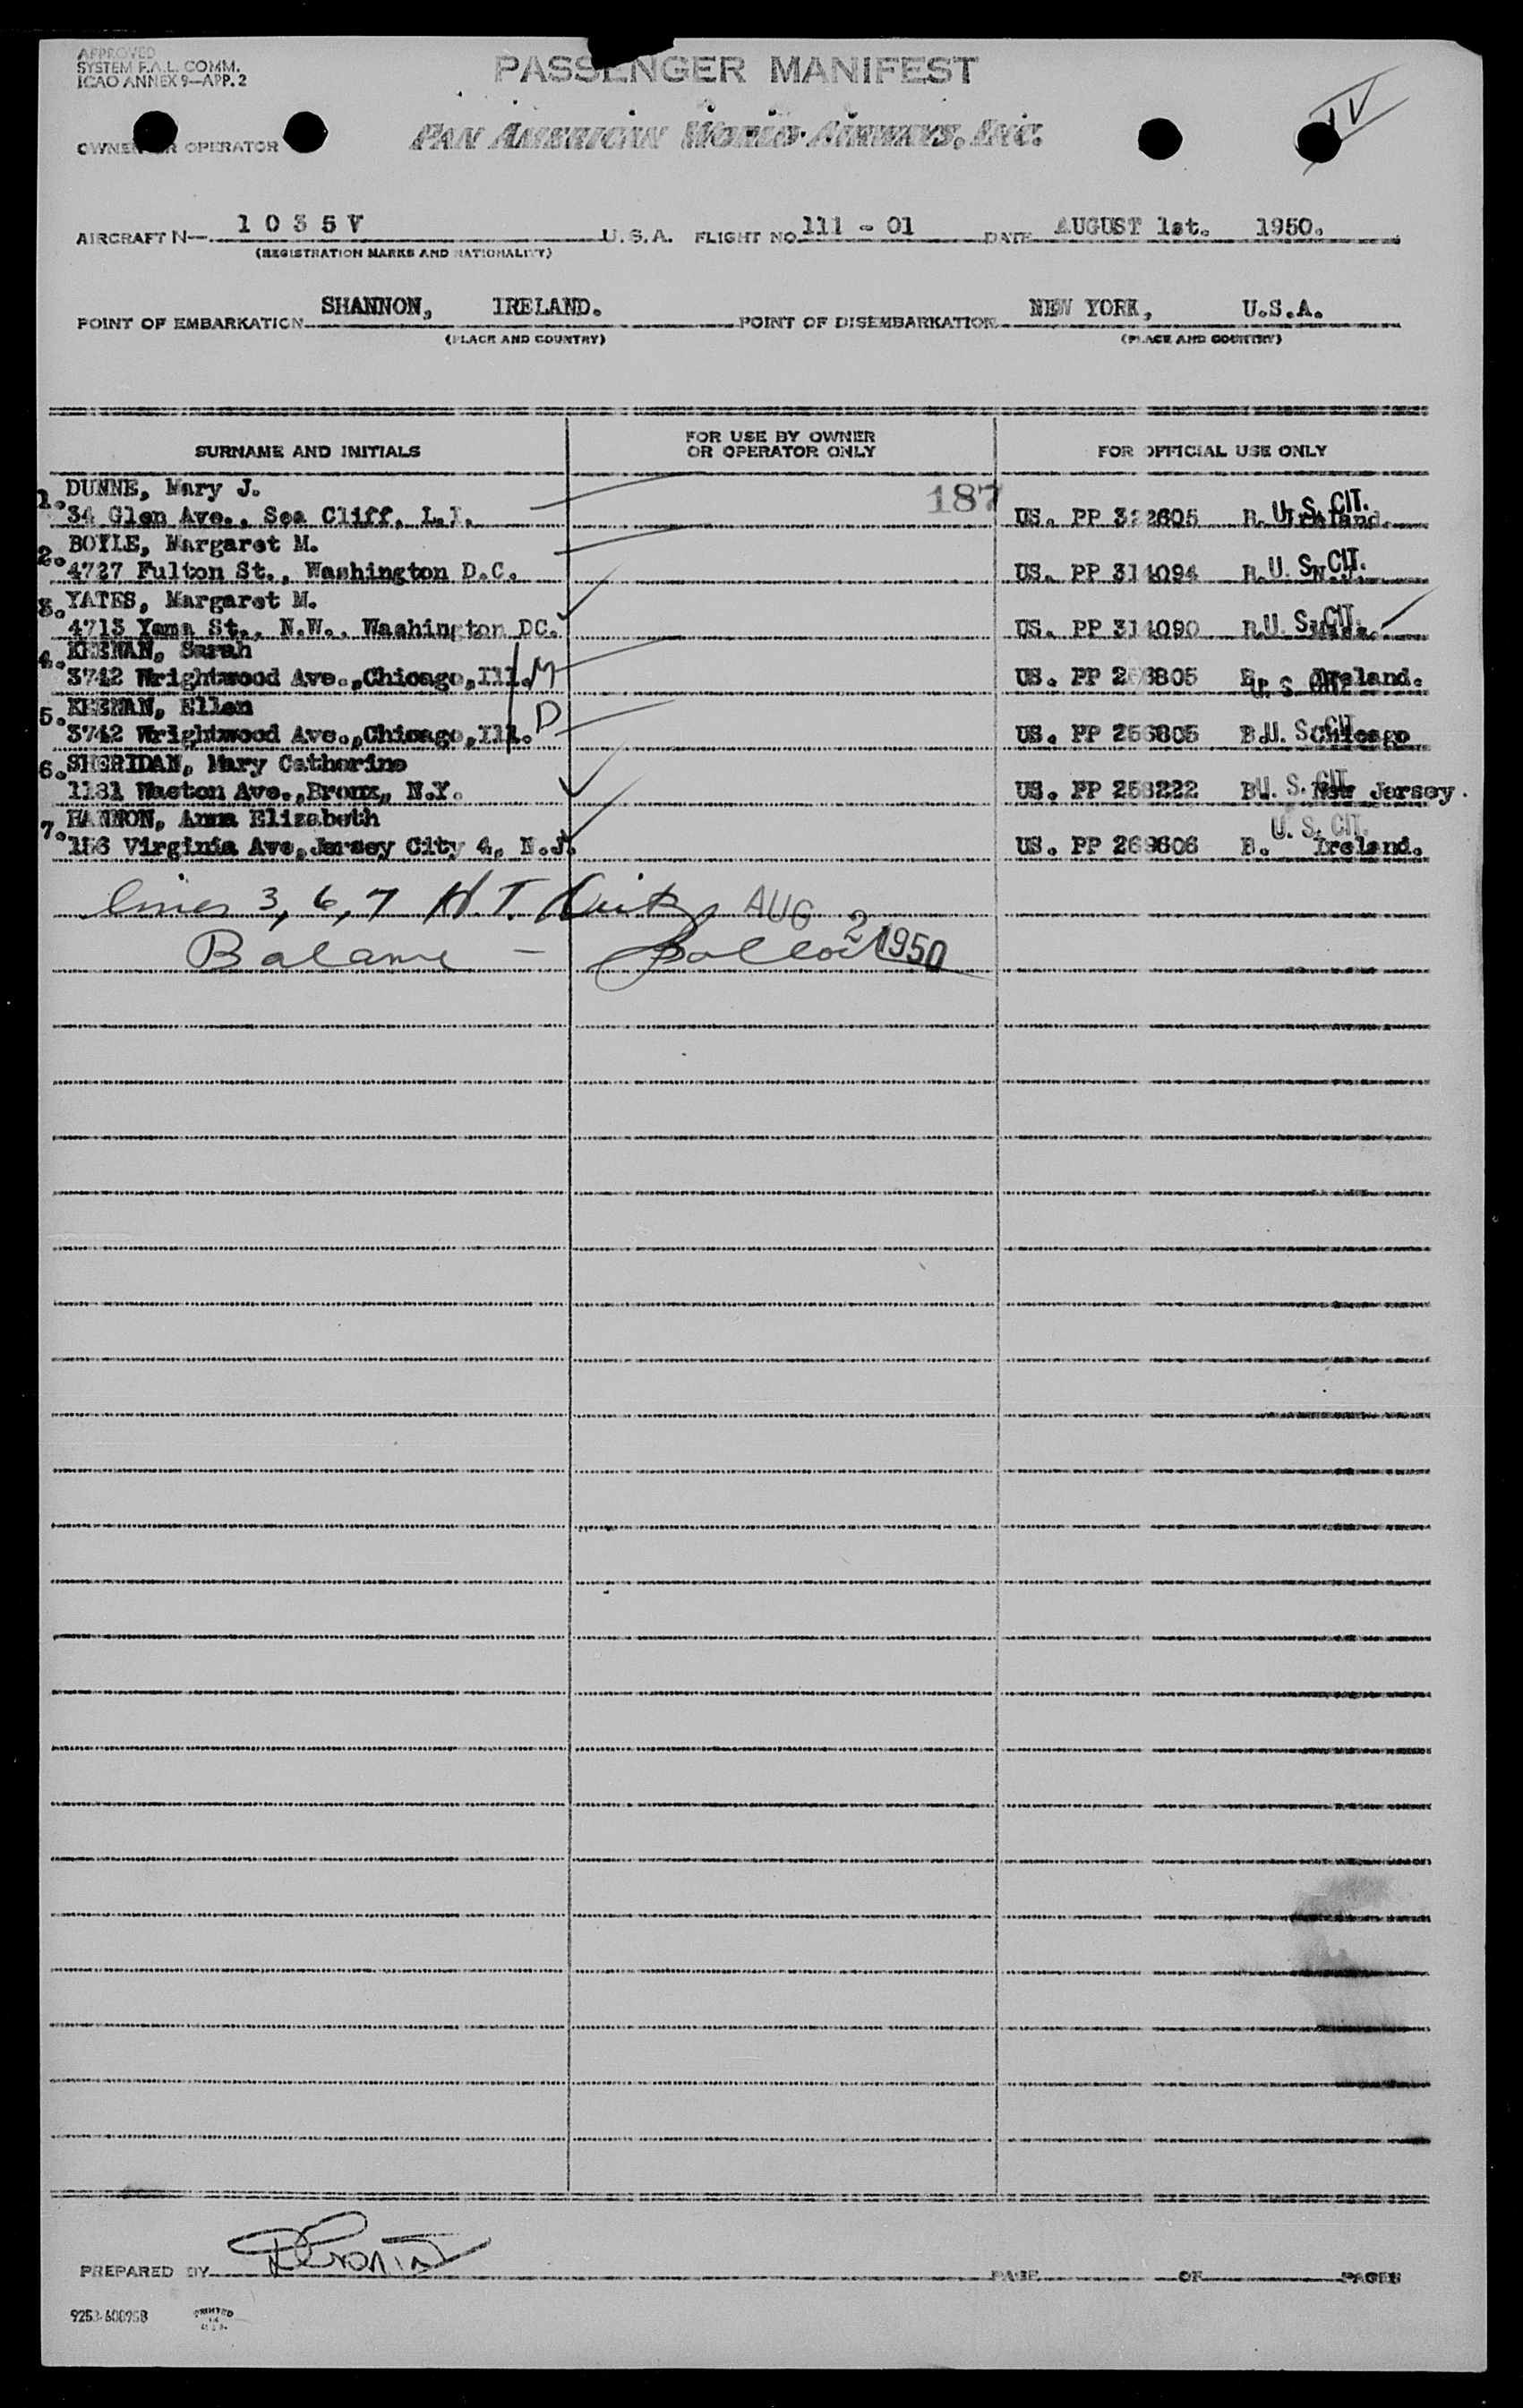 APPROVED
SYSTEM F.A.L. COMM.
ICAO ANNEX 9—APP. 2
PASSENGER MANIFEST
IV
OWNER OR OPERATOR
PAN AMERICAN WORLD AIRWAYS, INC.
AIRCRAFT N— 1 0 3 5 V U.S.A. FLIGHT NO. 111 - 01 DATE AUGUST 1st. 1950.
(REGISTRATION MARKS AND NATIONALITY)
POINT OF EMBARKATION SHANNON, IRELAND. POINT OF DISEMBARKATION NEW YORK, U.S.A.
(PLACE AND COUNTRY) (PLACE AND COUNTRY)
SURNAME AND INITIALS
FOR USE BY OWNER
OR OPERATOR ONLY
FOR OFFICIAL USE ONLY
187
1. DUNNE, Mary J.
34 Glen Ave., Sea Cliff, L.I. US. PP 322605 B. Ireland. U. S. CIT.
2. BOYLE, Margaret M.
4727 Fulton St., Washington D.C. US. PP 314094 B. N.J. U. S. CIT.
3. YATES, Margaret M.
4713 Yuma St., N.W., Washington DC. US. PP 314090 B. Mass. U. S. CIT.
4. KEENAN, Sarah
3742 Wrightwood Ave.,Chicago,Ill. M US. PP 256805 B. Ireland. U. S. CIT.
5. KEENAN, Ellen
3742 Wrightwood Ave.,Chicago,Ill. D US. PP 256805 B. Chicago U. S. CIT.
6. SHERIDAN, Mary Catherine
1181 Ave.,Bronx, N.Y. US. PP 258222 B. New Jersey. U. S. CIT.
7. HANNON, Anna Elizabeth
156 Virginia Ave,Jersey City 4, N.J. US. PP 269606 B. Ireland. U. S. CIT.
lines 3, 6, 7 H. T. AUG 2 1950
Balance –
PREPARED BY PAGE OF PAGES
PRINTED
IN
U.S.A.